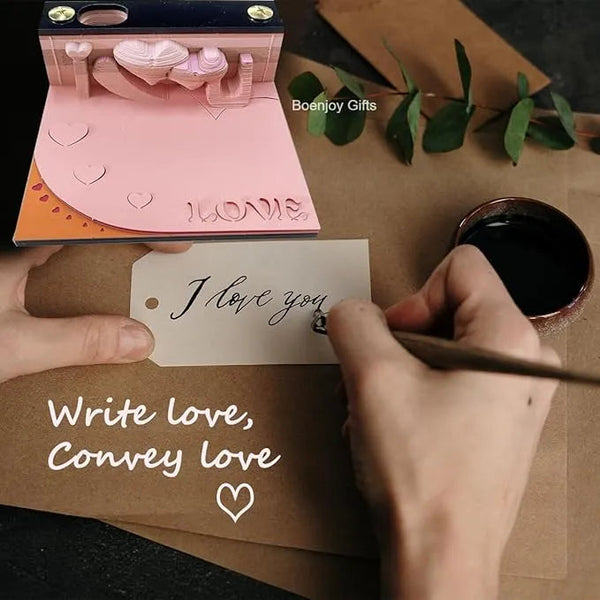 Boenjoy Gifts
I LOVE
I love you
Write love,
Convey love
♡